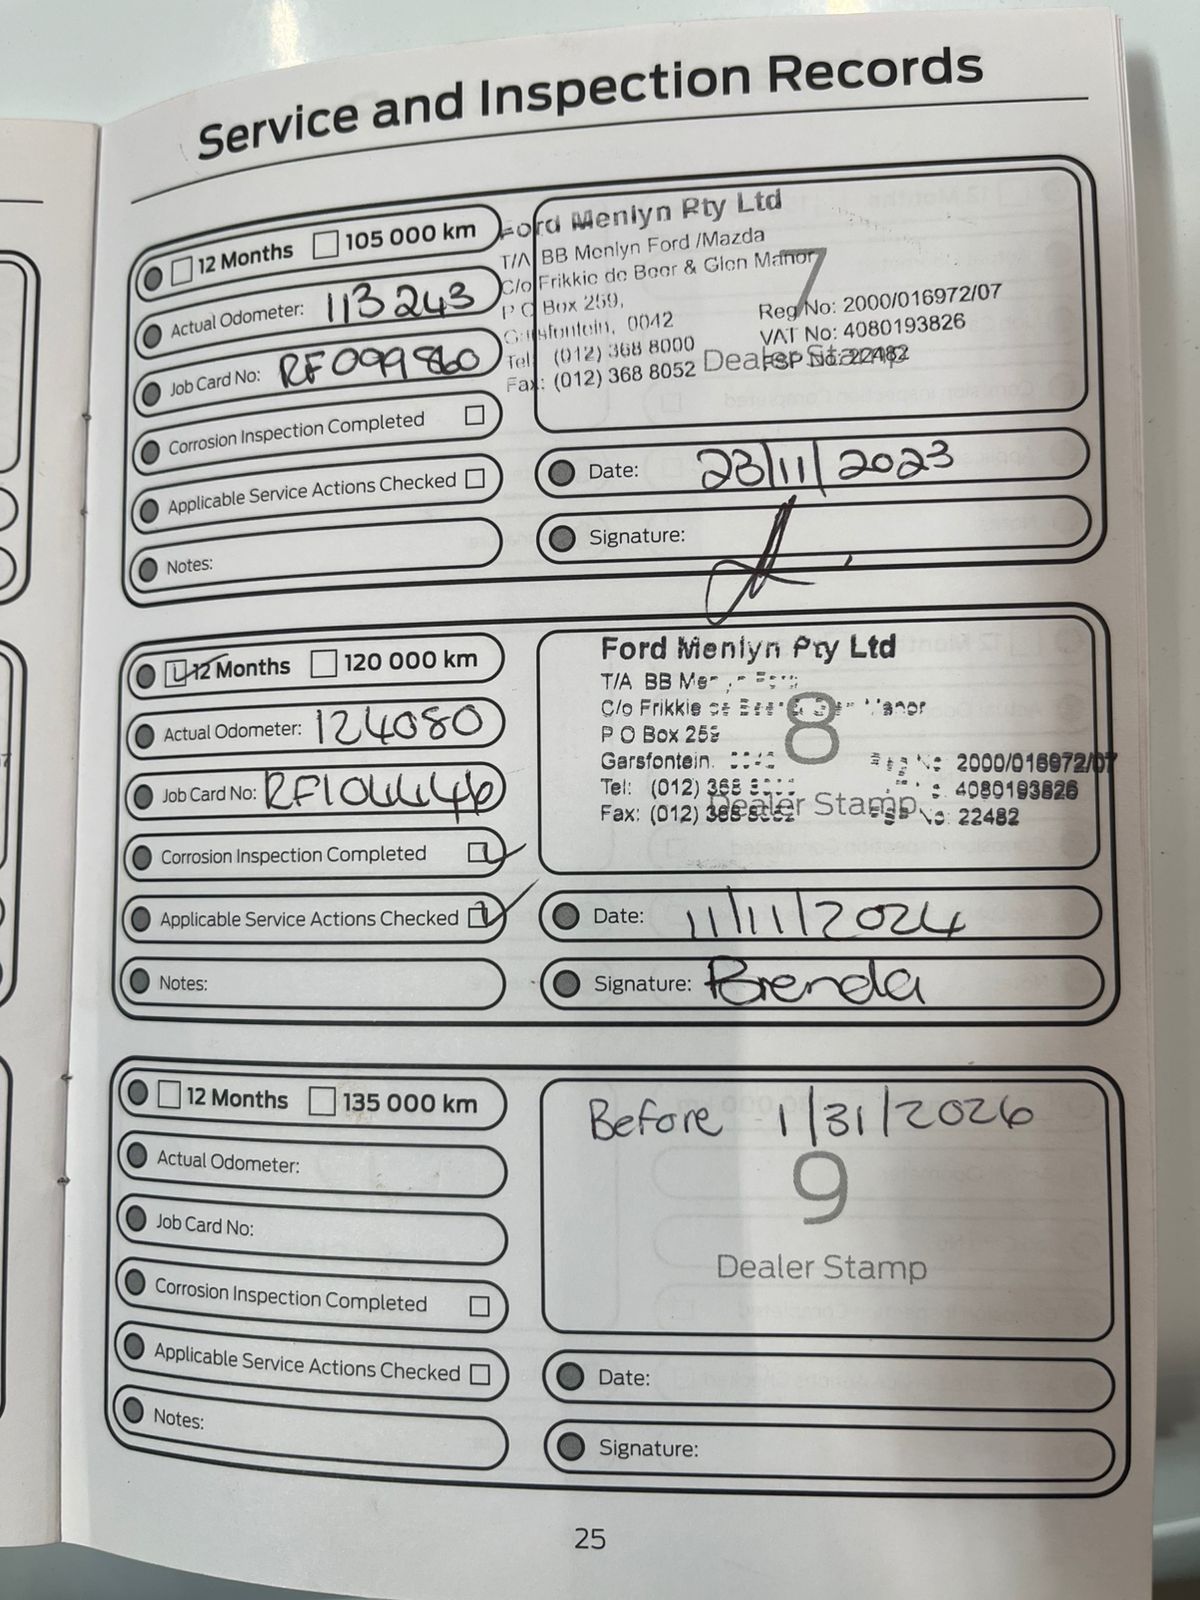 Service and Inspection Records
12 Months 105 000 km
Actual Odometer: 113 243
Job Card No: RF099860
Corrosion Inspection Completed
Applicable Service Actions Checked
Notes:
Ford Menlyn Pty Ltd
T/A BB Menlyn Ford /Mazda
C/o Frikkie de Beer & Glen Manor
P O Box 259,
Garsfontein, 0042
Tel: (012) 368 8000
Fax: (012) 368 8052
Reg No: 2000/016972/07
VAT No: 4080193826
FSP No: 22482
7
Dealer Stamp
Date: 23/11/2023
Signature:
12 Months 120 000 km
Actual Odometer: 124080
Job Card No: RF104446
Corrosion Inspection Completed
Applicable Service Actions Checked
Notes:
Ford Menlyn Pty Ltd
T/A BB
C/o Frikkie Manor
P O Box 259
Garsfontein.
Tel: (012) 368
Fax: (012) 368 8052
2000/016972/07
4080193826
22482
8
Dealer Stamp
Date: 11/11/2024
Signature: Brenda
12 Months 135 000 km
Actual Odometer:
Job Card No:
Corrosion Inspection Completed
Applicable Service Actions Checked
Notes:
Before 1/31/2026
9
Dealer Stamp
Date:
Signature:
25